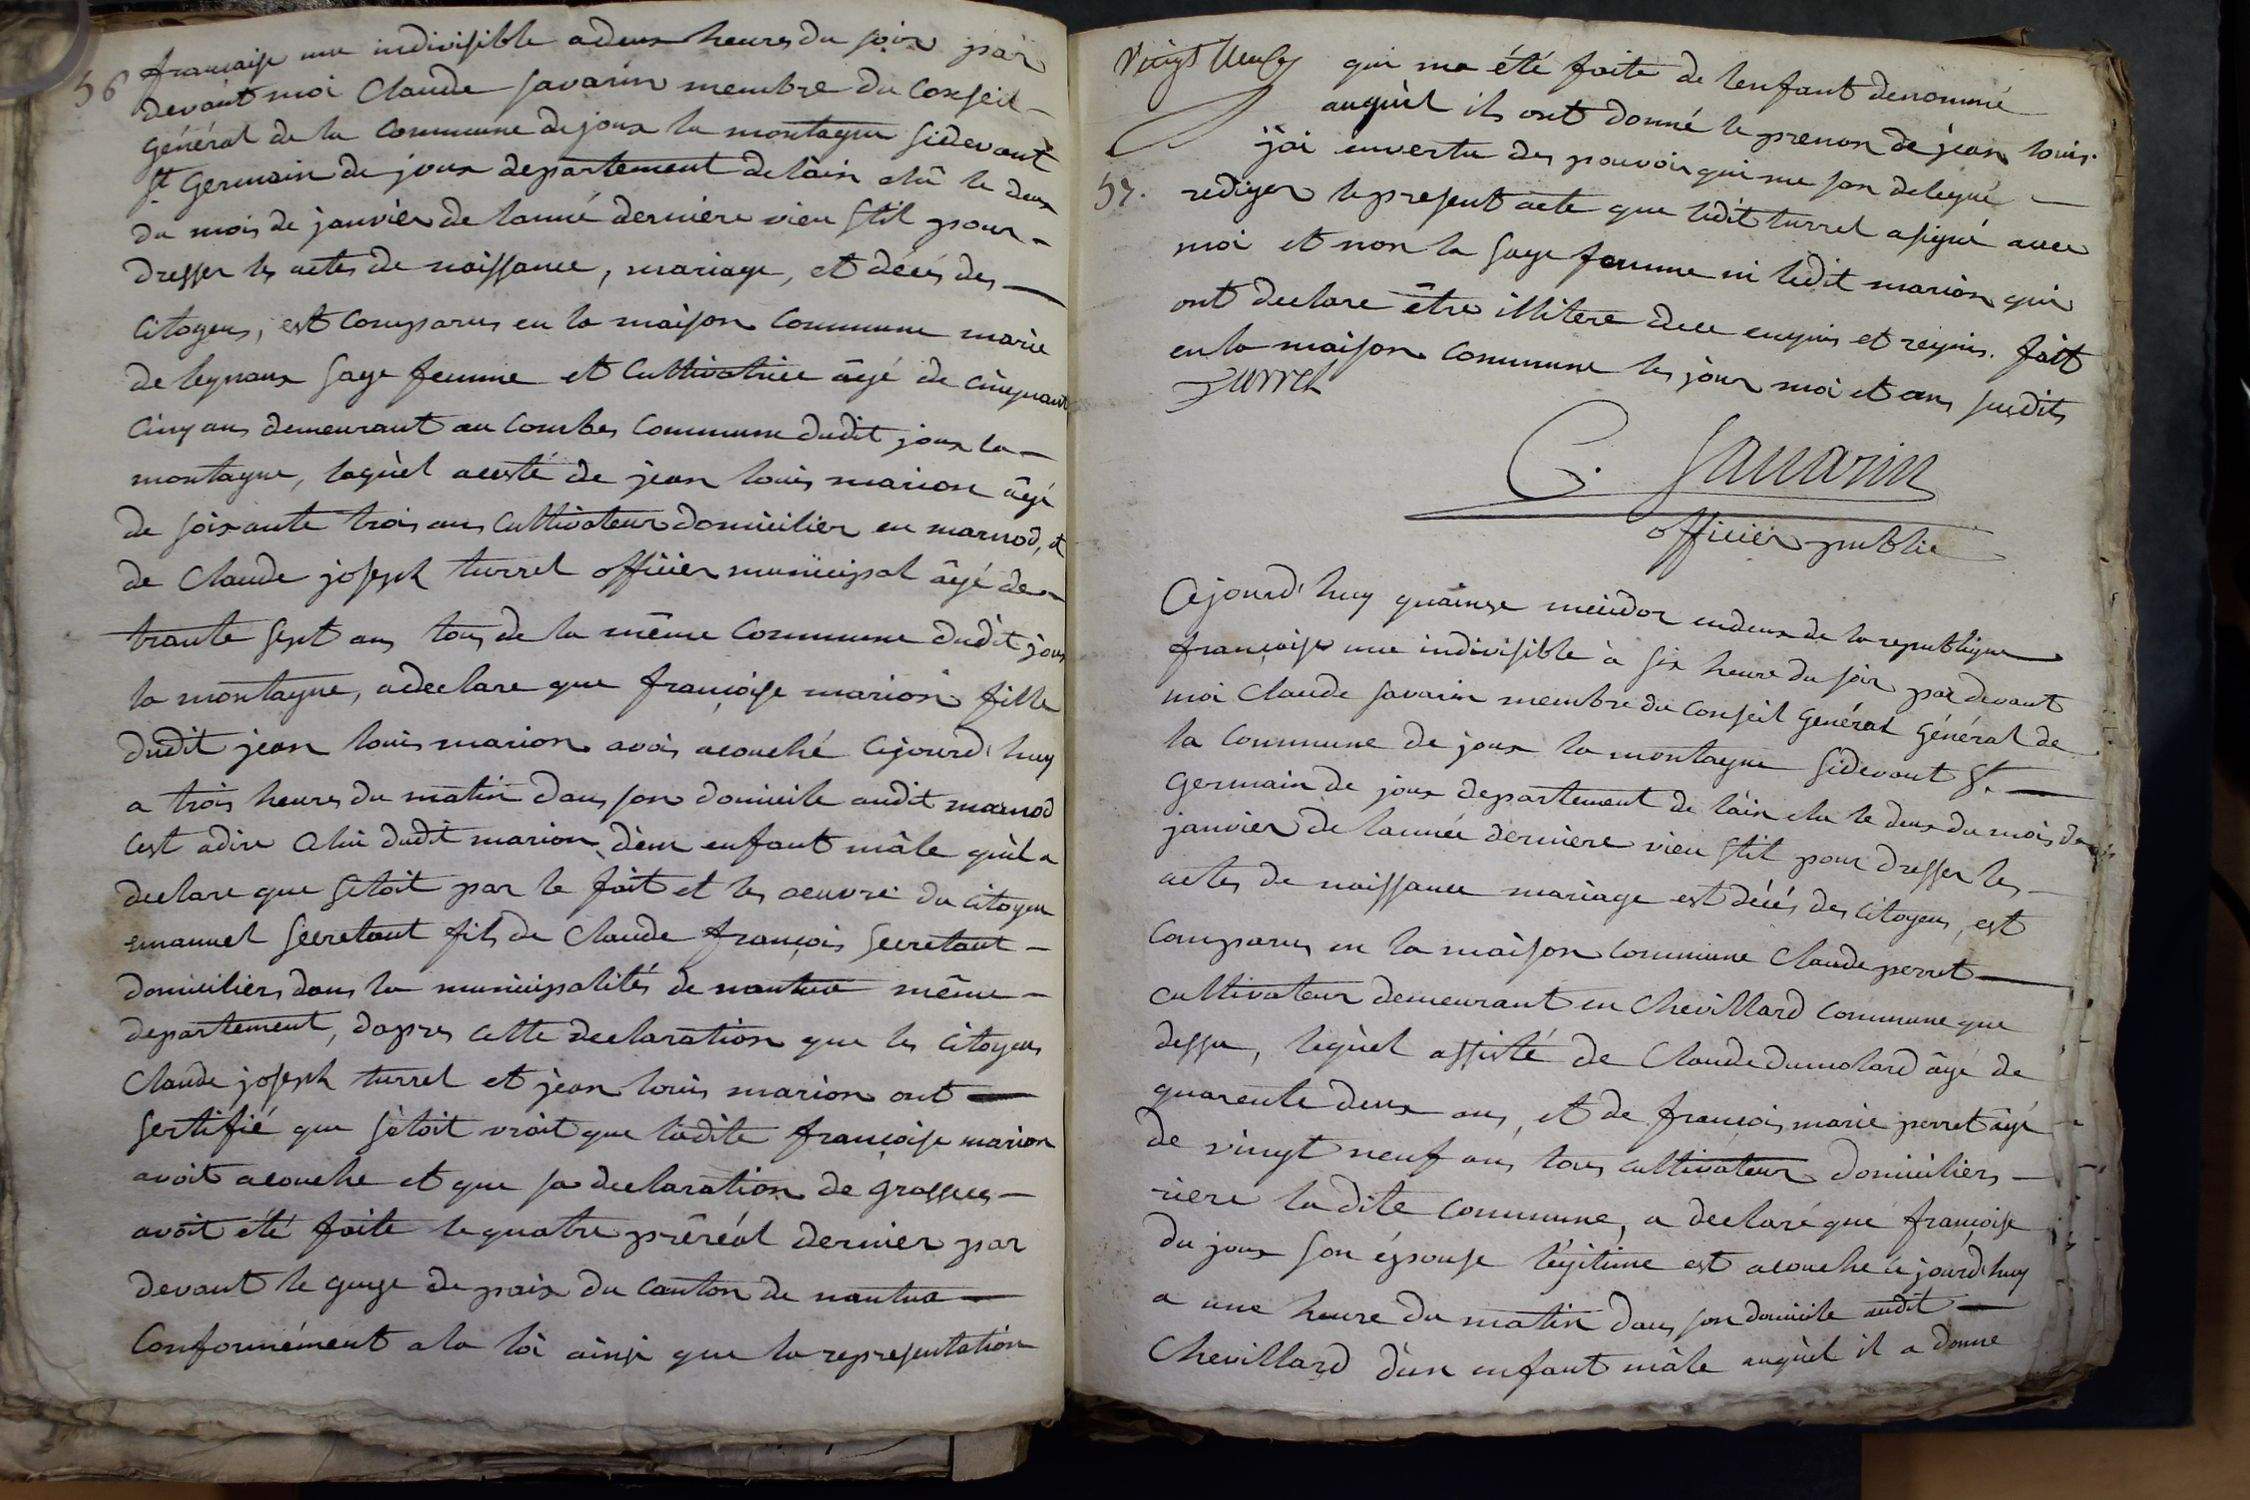 56
française une indivisible a deux heures du soir par
devant moi Claude Savarin membre du Conseil
Général de la Commune de joux la montagne Sidevant
St Germain de joux departement de l'ain elû le deux
du mois de janvier de lanné derniere vieu stil pour
dresser les actes de naissance, mariage, et décés des
Citoyens, est Comparus en la maison Commune marie
de legnaux sage femme et Cultivatrice âgé de cinquant
Cinq ans demeurant au Combes Commune dudit joux la
montagne, laquèl acisté de jean louis marion âgé
de soixante trois ans Cultivateur domicilier en marnod, et
de Claude joseph turrel officier municipal âgé de
trante sept ans tous de la même Commune dudit joux
la montagne, a declare que françoise marion fille
dudit jean louis marion avois acouché Cejourd'huy
a trois heures du matin dans son domicile audit marnod
Cest adire Celui dudit marion d'èun enfant mâle quèl a
declare que sétoit par le fait et les oeuvre du Citoyen
emanuel Secretant fils de Claude françois Secretant
domiciliers dans la municipalités de nantua même
departement, dapres cette declaration que les Citoyens
Claude joseph turrel et jean louis marion ont
sertifié que sètoit vrait que ladite françoise marion
avoit acouche et que sa declaration de grosses
avoit été faite le quatre prêréal dernier par
devant le guge de paix du Canton de nantua
Conformément a la loi ainsi que la representation
Vingt Neufs
qui ma été faite de lenfant denommé
auquèl ils ont donné le prenon de jean louis.
j'ai envertu des pouvoir qui me son delegué
57.
rediger le present acte que ledit turrel a signé avec
moi et non la sage femme ni ledit marion qui
ont declare être illitere dece enquis et requis. fait
en la maison Commune les jour moi et ans susdits
Turrel
C. Savarin
officier public
Cejourd'huy quainze mecidor endeux de la republique
françoise une indivisible à six heure du soir par devant
moi Claude Savarin membre du Conseil Genéral Général de
la Commune de joux la montagne Sidevant St.
Germain de joux departement de l'ain elu le deux du mois de
janvier de lannée derniere vieu stil pour dresser les
actes de naissance mariage est décés des Citoyens, est
Comparus en la maison Commune Claude perret
Cultivateur demeurant en Chevillard Commune que
dessu, lequèl assisté de Claude dumolard âgé de
quarente deux ans, et de françois marie perret âgé
de vingt neuf ans tous cultivateur domiciliers
riere la dite Commune, a declaré que françoise
du joux son épouse légitime est acouche cejourd'huy
a une heure du matin dans son domicile audit
Chevillard d'èun enfant mâle auquèl il a donne